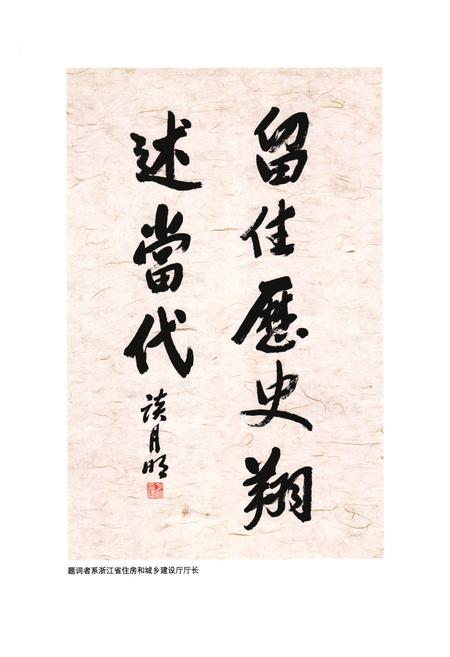 留住歷史翔
述當代
谈月明
题词者系浙江省住房和城乡建设厅厅长